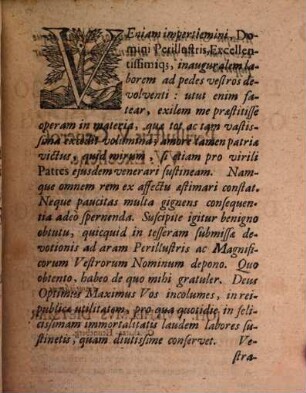 VEniam impertiemini, Do-
mini Perillustris, Excellen-
tissimiq;, inauguralem la-
borem ad pedes vestros de-
volventi: utut enim fa-
tear, exilem me præstitisse
operam in materia, quæ tot ac tam vastis-
sima excedit volumina; amore tamen patriæ
victus, quid mirum, si etiam pro virili
Patres ejusdem venerari sustineam. Nam-
que omnem rem ex affectu æstimari constat.
Neque paucitas multa gignens consequen-
tia adeo spernenda. Suscipite igitur benigno
obtutu, quicquid in tesseram submissæ de-
votionis ad aram Perillustris ac Magnifi-
corum Vestrorum Nominum depono. Quo
obtento, habeo de quo mihi gratuler. Deus
Optimus Maximus Vos incolumes, in rei-
publicæ utilitatem, pro qua quotidie in feli-
cissimam immortalitatis laudem labores su-
stinetis, quam diutissime conservet.
Ve-
stra-